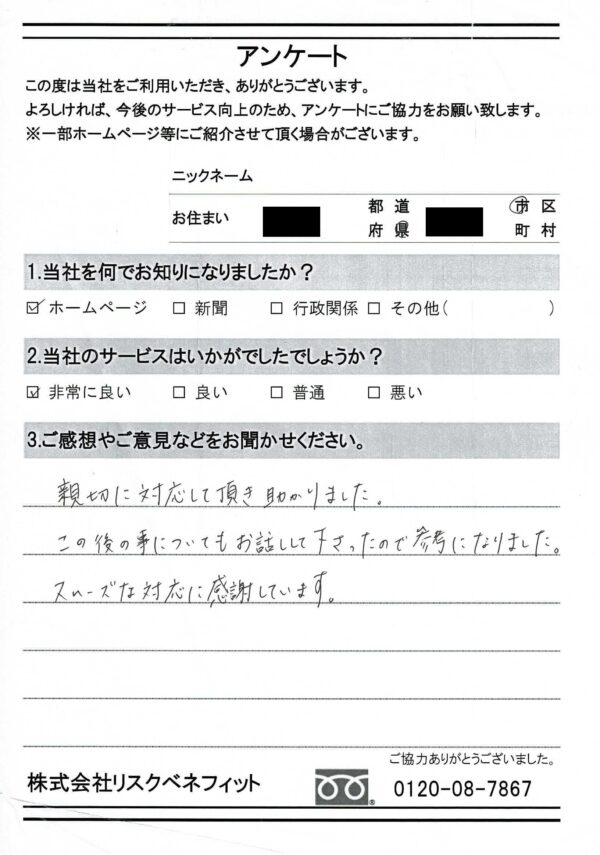 アンケート
この度は当社をご利用いただき、ありがとうございます。
よろしければ、今後のサービス向上のため、アンケートにご協力をお願い致します。
※一部ホームページ等にご紹介させて頂く場合がございます。
ニックネーム
お住まい 都道府県 市区町村
1.当社を何でお知りになりましたか？
☑ ホームページ □ 新聞 □ 行政関係 □ その他( )
2.当社のサービスはいかがでしたでしょうか？
☑ 非常に良い □ 良い □ 普通 □ 悪い
3.ご感想やご意見などをお聞かせください。
親切に対応して頂き助かりました。
この後の事についてもお話しして下さったので参考になりました。
スムーズな対応に感謝しています。
ご協力ありがとうございました。
株式会社リスクベネフィット 0120-08-7867